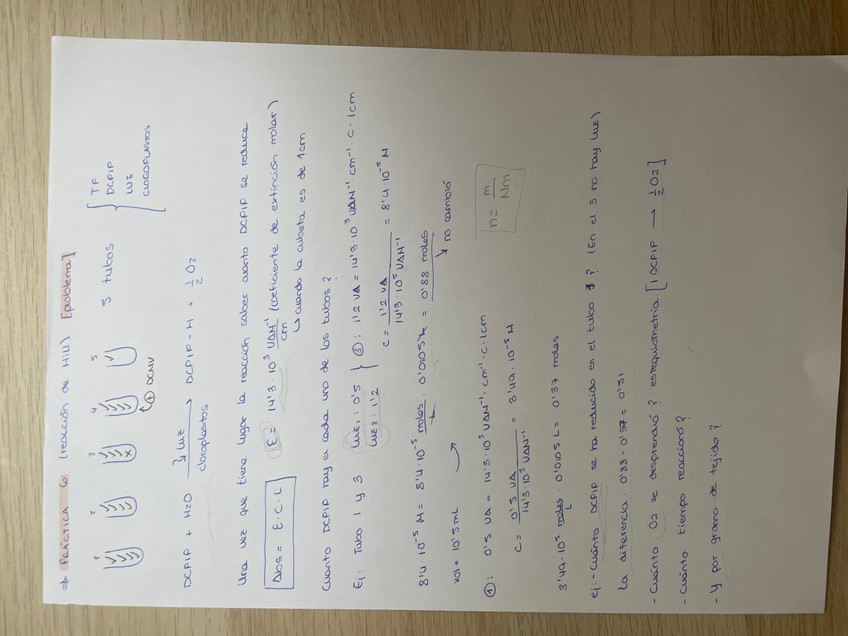 ⇒ PRÁCTICA 6 (reacción de Hill) [problema]
1 2 3 4 5 5 tubos { TP
DCPIP
LUZ
CLOROPLASTOS
⊕ DCMU
DCPIP + H2O luz → cloroplastos DCPIP - H + 1/2 O2
Una vez que tiene lugar la reacción saber cuanto DCPIP se reduce
Abs = E · C · L E = 14'3 · 10³ UAM⁻¹/cm (coeficiente de extinción molar)
↳ cuando la cubeta es de 1cm
Cuanto DCPIP hay en cada uno de los tubos?
Ej: Tubo 1 y 3 luz1: 0'5
luz3: 1'2 } ③: 1'2 UA = 14'3 · 10³ UAM⁻¹ · cm⁻¹ · C · 1cm
C = 1'2 UA / 14'3 · 10³ UAM⁻¹ = 8'4 · 10⁻⁵ M
8'4 · 10⁻⁵ M = 8'4 · 10⁻⁵ moles/L · 0'0105 L = 0'88 moles
↘ no cambió
vol = 10'5 mL
①: 0'5 UA = 14'3 · 10³ UAM⁻¹ · cm⁻¹ · C · 1cm
n = m/Mm
C = 0'5 UA / 14'3 · 10³ UAM⁻¹ = 3'49 · 10⁻⁵ M
3'49 · 10⁻⁵ moles/L · 0'0105 L = 0'37 moles
ej: - Cuánto DCPIP se ha reducido en el tubo 1? (En el 3 no hay luz)
La diferencia: 0'88 - 0'37 = 0'51
- Cuánto O2 se desprendió? estequiometría [1 DCPIP → 1/2 O2]
- Cuánto tiempo reaccionó?
- Y por gramo de tejido?